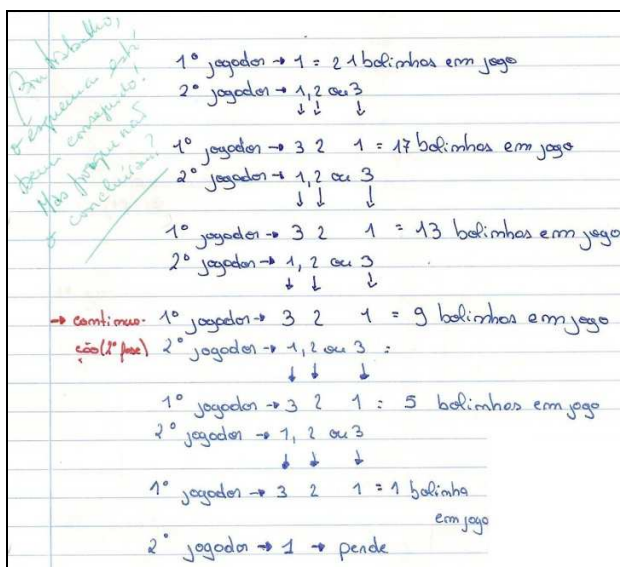 Bom trabalho,
o esquema está
bem conseguido!
Mas porque não
o concluiram?
1º jogador → 1 = 21 bolinhas em jogo
2º jogador → 1, 2 ou 3
↓ ↓ ↓
1º jogador → 3 2 1 = 17 bolinhas em jogo
2º jogador → 1, 2 ou 3
↓ ↓ ↓
1º jogador → 3 2 1 = 13 bolinhas em jogo
2º jogador → 1, 2 ou 3
↓ ↓ ↓
→ continua- 1º jogador → 3 2 1 = 9 bolinhas em jogo
ção (2ª fase) 2º jogador → 1, 2 ou 3 :
↓ ↓ ↓
1º jogador → 3 2 1 = 5 bolinhas em jogo
2º jogador → 1, 2 ou 3
↓ ↓ ↓
1º jogador → 3 2 1 = 1 bolinha
em jogo
2º jogador → 1 → perde